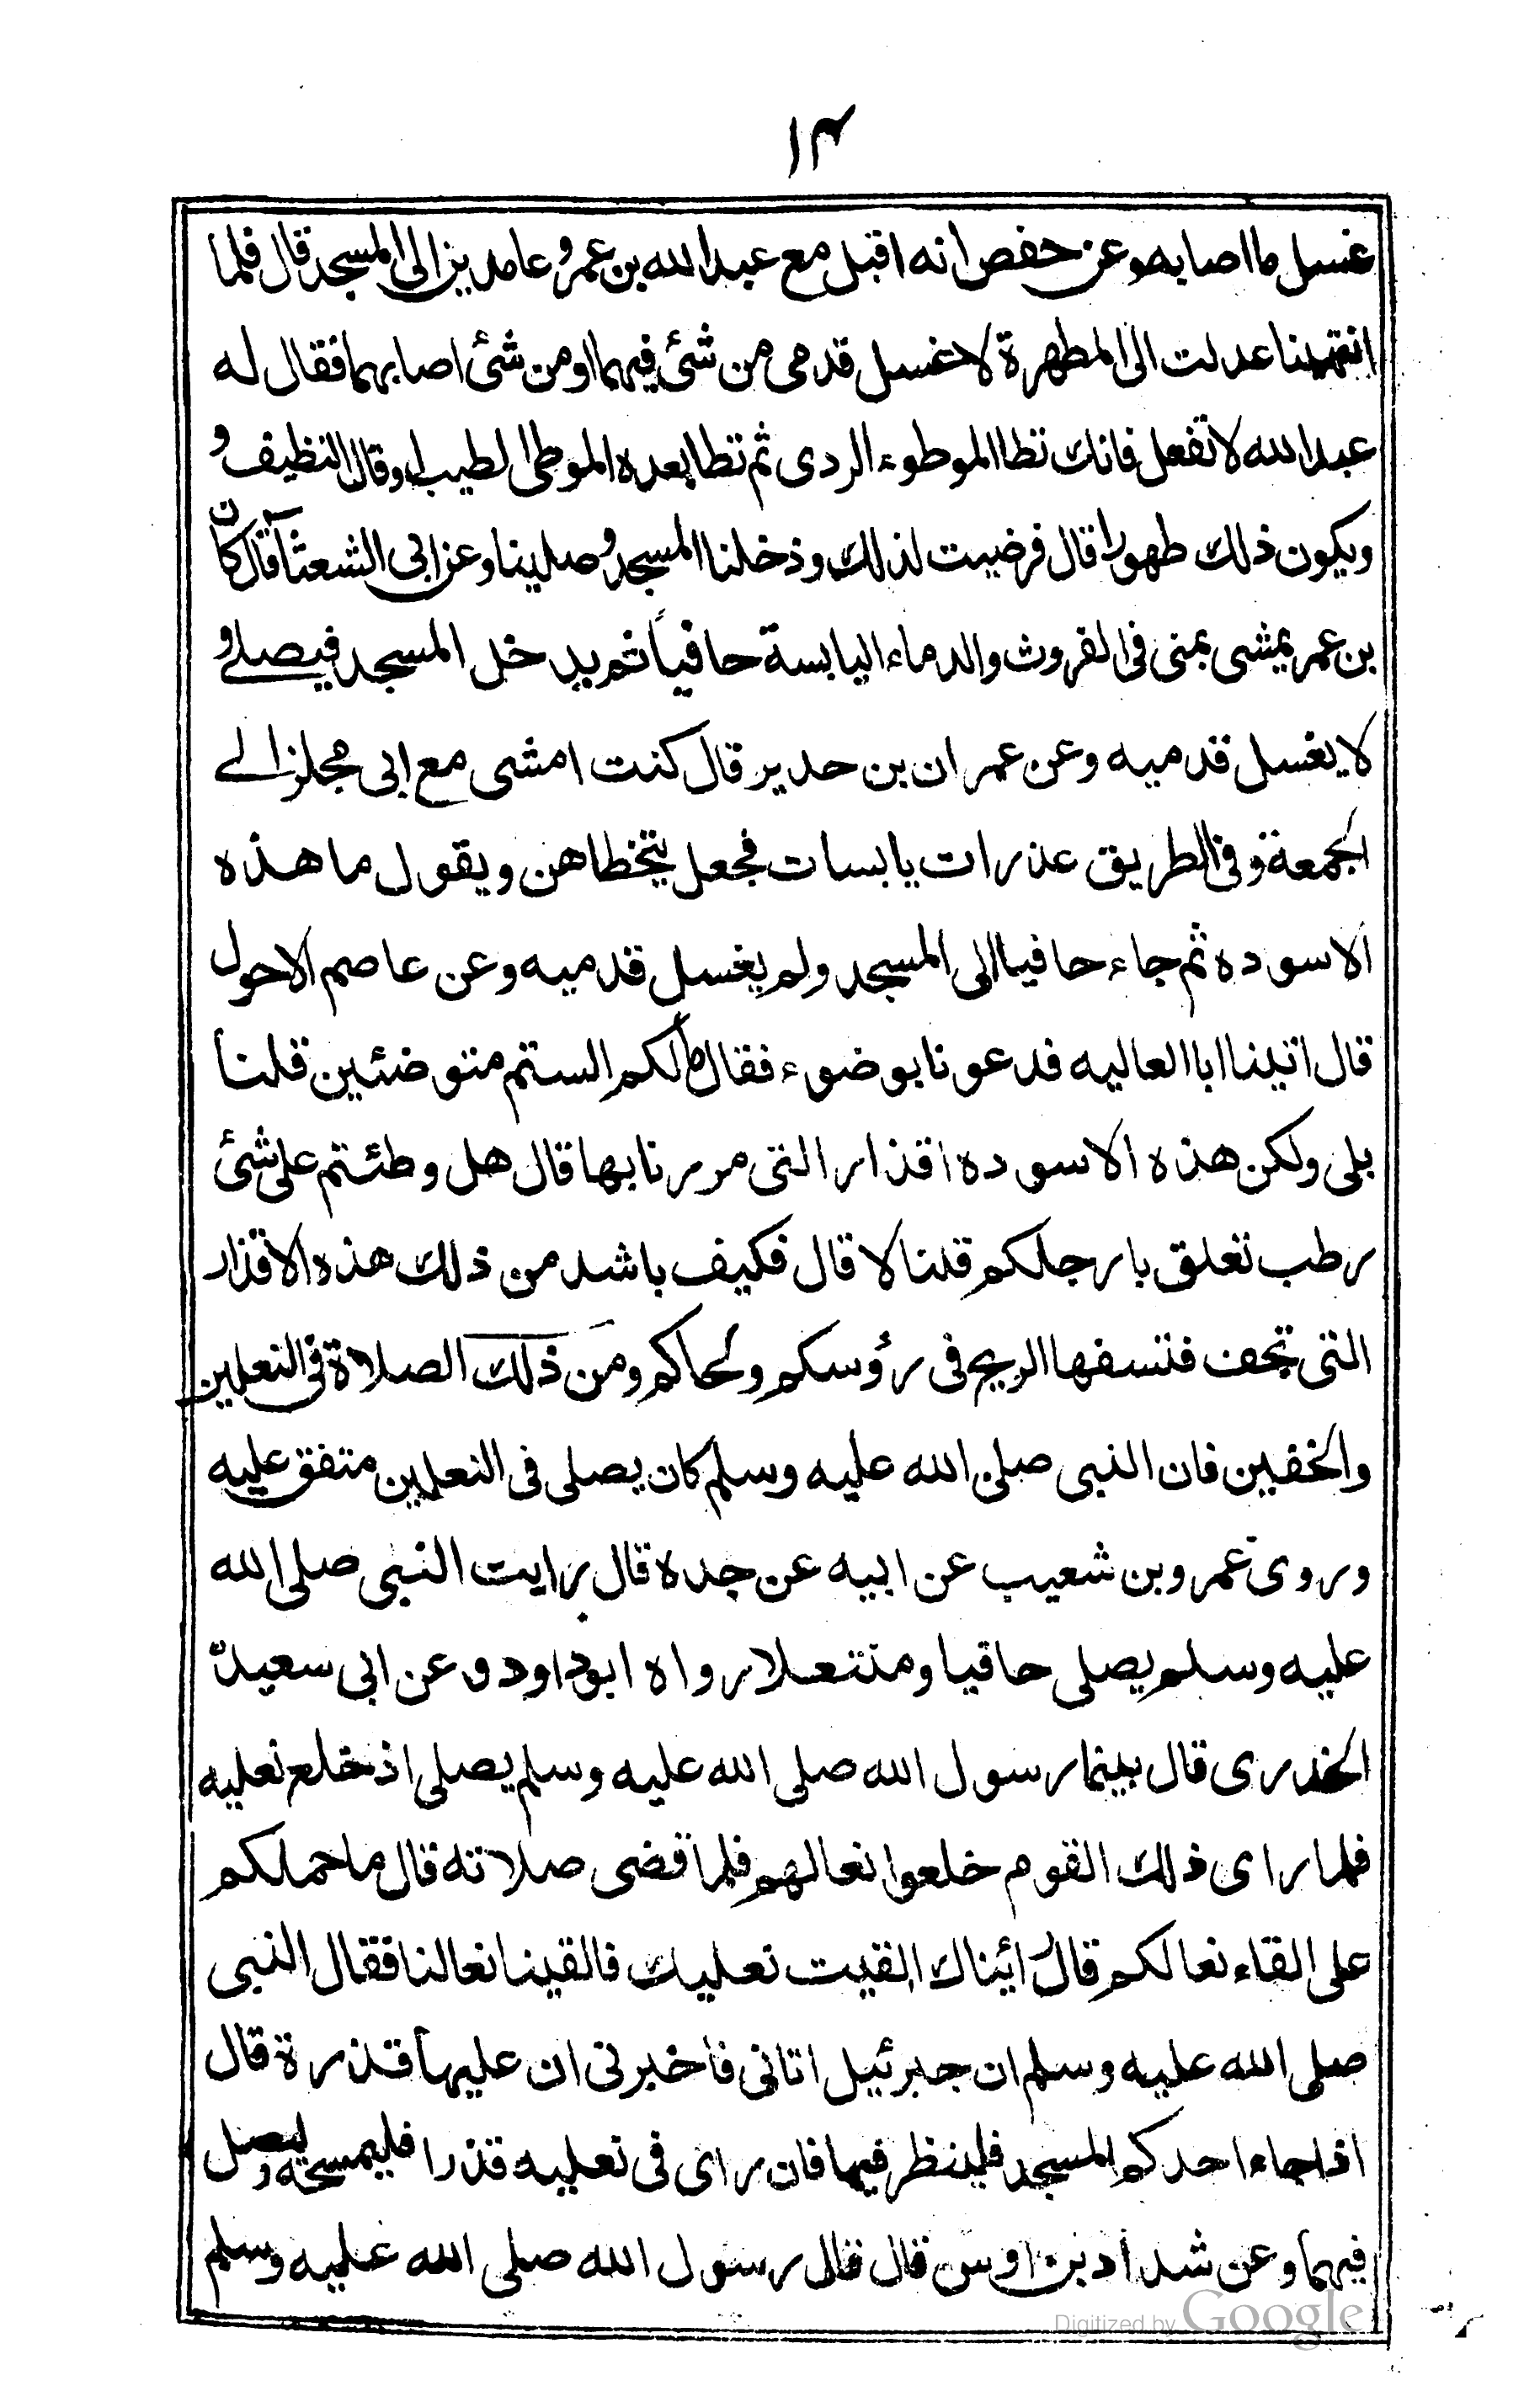 ١٣
غسل ما اصابه وعن حفص انه اقبل مع عبدالله بن عمرو عامدين الى المسجد قال فلما
انتهينا عدلت الى المطهرة لاغسل قدمى من شئ فيهما او من شئ اصابهما فقال له
عبدالله لا تفعل فانك تطا الموطوء الردى ثم تطا بعده الموطى الطيب او قال النظيف و
ويكون ذلك طهورا قال فرضيت لذلك وذخلنا المسجد وصلينا وعن ابى الشعثآ قال كان
بن عمر يمشى بمنى فى الفروث والدماء اليابسة حافياً ثم يدخل المسجد فيصلے و
لا يغسل قدميه وعن عمران بن حدير قال كنت امشى مع ابى مجلز الے
الجمعة وفى الطريق عذرات يابسات فجعل يتخطاهن ويقول ما هذه
الا سوده ثم جاء حافيا الى المسجد ولم يغسل قدميه وعن عاصم الاحول
قال اتينا ابا العاليه فدعونا بوضوء فقال مالكم الستم متوضئين قلنا
بلى ولكن هذه الاسوده اقذار التى مررنا بها قال هل وطئتم على شئ
رطب تعلق بارجلكم قلنا لا قال فكيف باشد من ذلك هذه الاقذار
التى تجف فتنسفها الريح فى رؤسكم ولحاكم ومن ذلك الصلاة فى النعلين
والخفين فان النبى صلى الله عليه وسلم كان يصلى فى النعلين متفق عليه
وروى عمرو بن شعيب عن ابيه عن جده قال رايت النبى صلى الله
عليه وسلم يصلى حافيا ومنتعلا رواه ابوداود و عن ابى سعيد
الخدرى قال بينما رسول الله صلى الله عليه وسلم يصلى اذ خلع نعليه
فلما راى ذلك القوم خلعوا نعالهم فلما قضى صلاته قال ما حملكم
على القاء نعالكم قال رائيناك القيت نعليك فالقينا نعالنا فقال النبى
صلى الله عليه وسلم ان جبرئيل اتانى فاخبرنى ان عليهما قذرة قال
اذا جاء احدكم المسجد فلينظر فيهما فان راى فى نعليه قذرا فليمسحه وليصل
فيهما وعن شداد بن اوس قال قال رسول الله صلى الله عليه وسلم
Digitized by Google